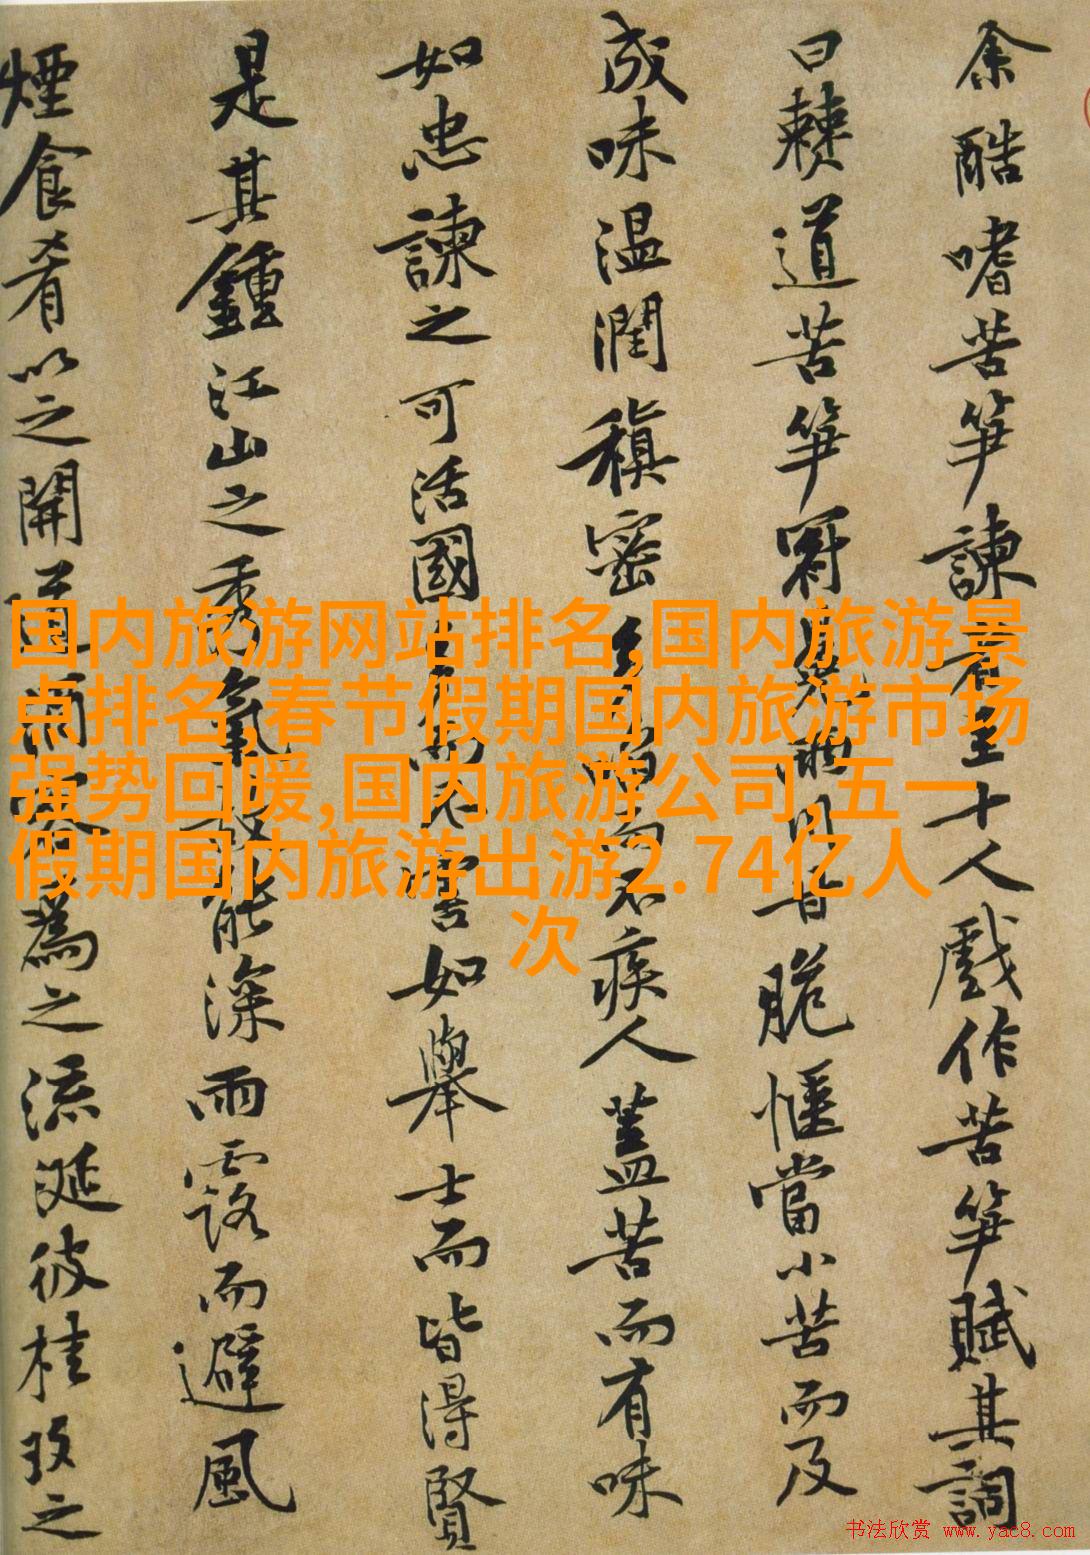 余酷嗜苦笋諫者至十人戲作苦笋賦其詞
曰僰道苦笋冠冕兩川甘脆愜當小苦而及
成味温潤稹密多啗而不疾人蓋苦而有味
如忠諫之可活國多而不害如舉士而皆得賢
是其鍾江山之秀氣故能深雨露而避風
煙食肴以之開道酒客為之流涎彼桂玫之
国内旅游网站排名,国内旅游景
点排名,春节假期国内旅游市场
强势回暖,国内旅游公司,五一
假期国内旅游出游2.74亿人
次
书法欣赏 www.yac8.com